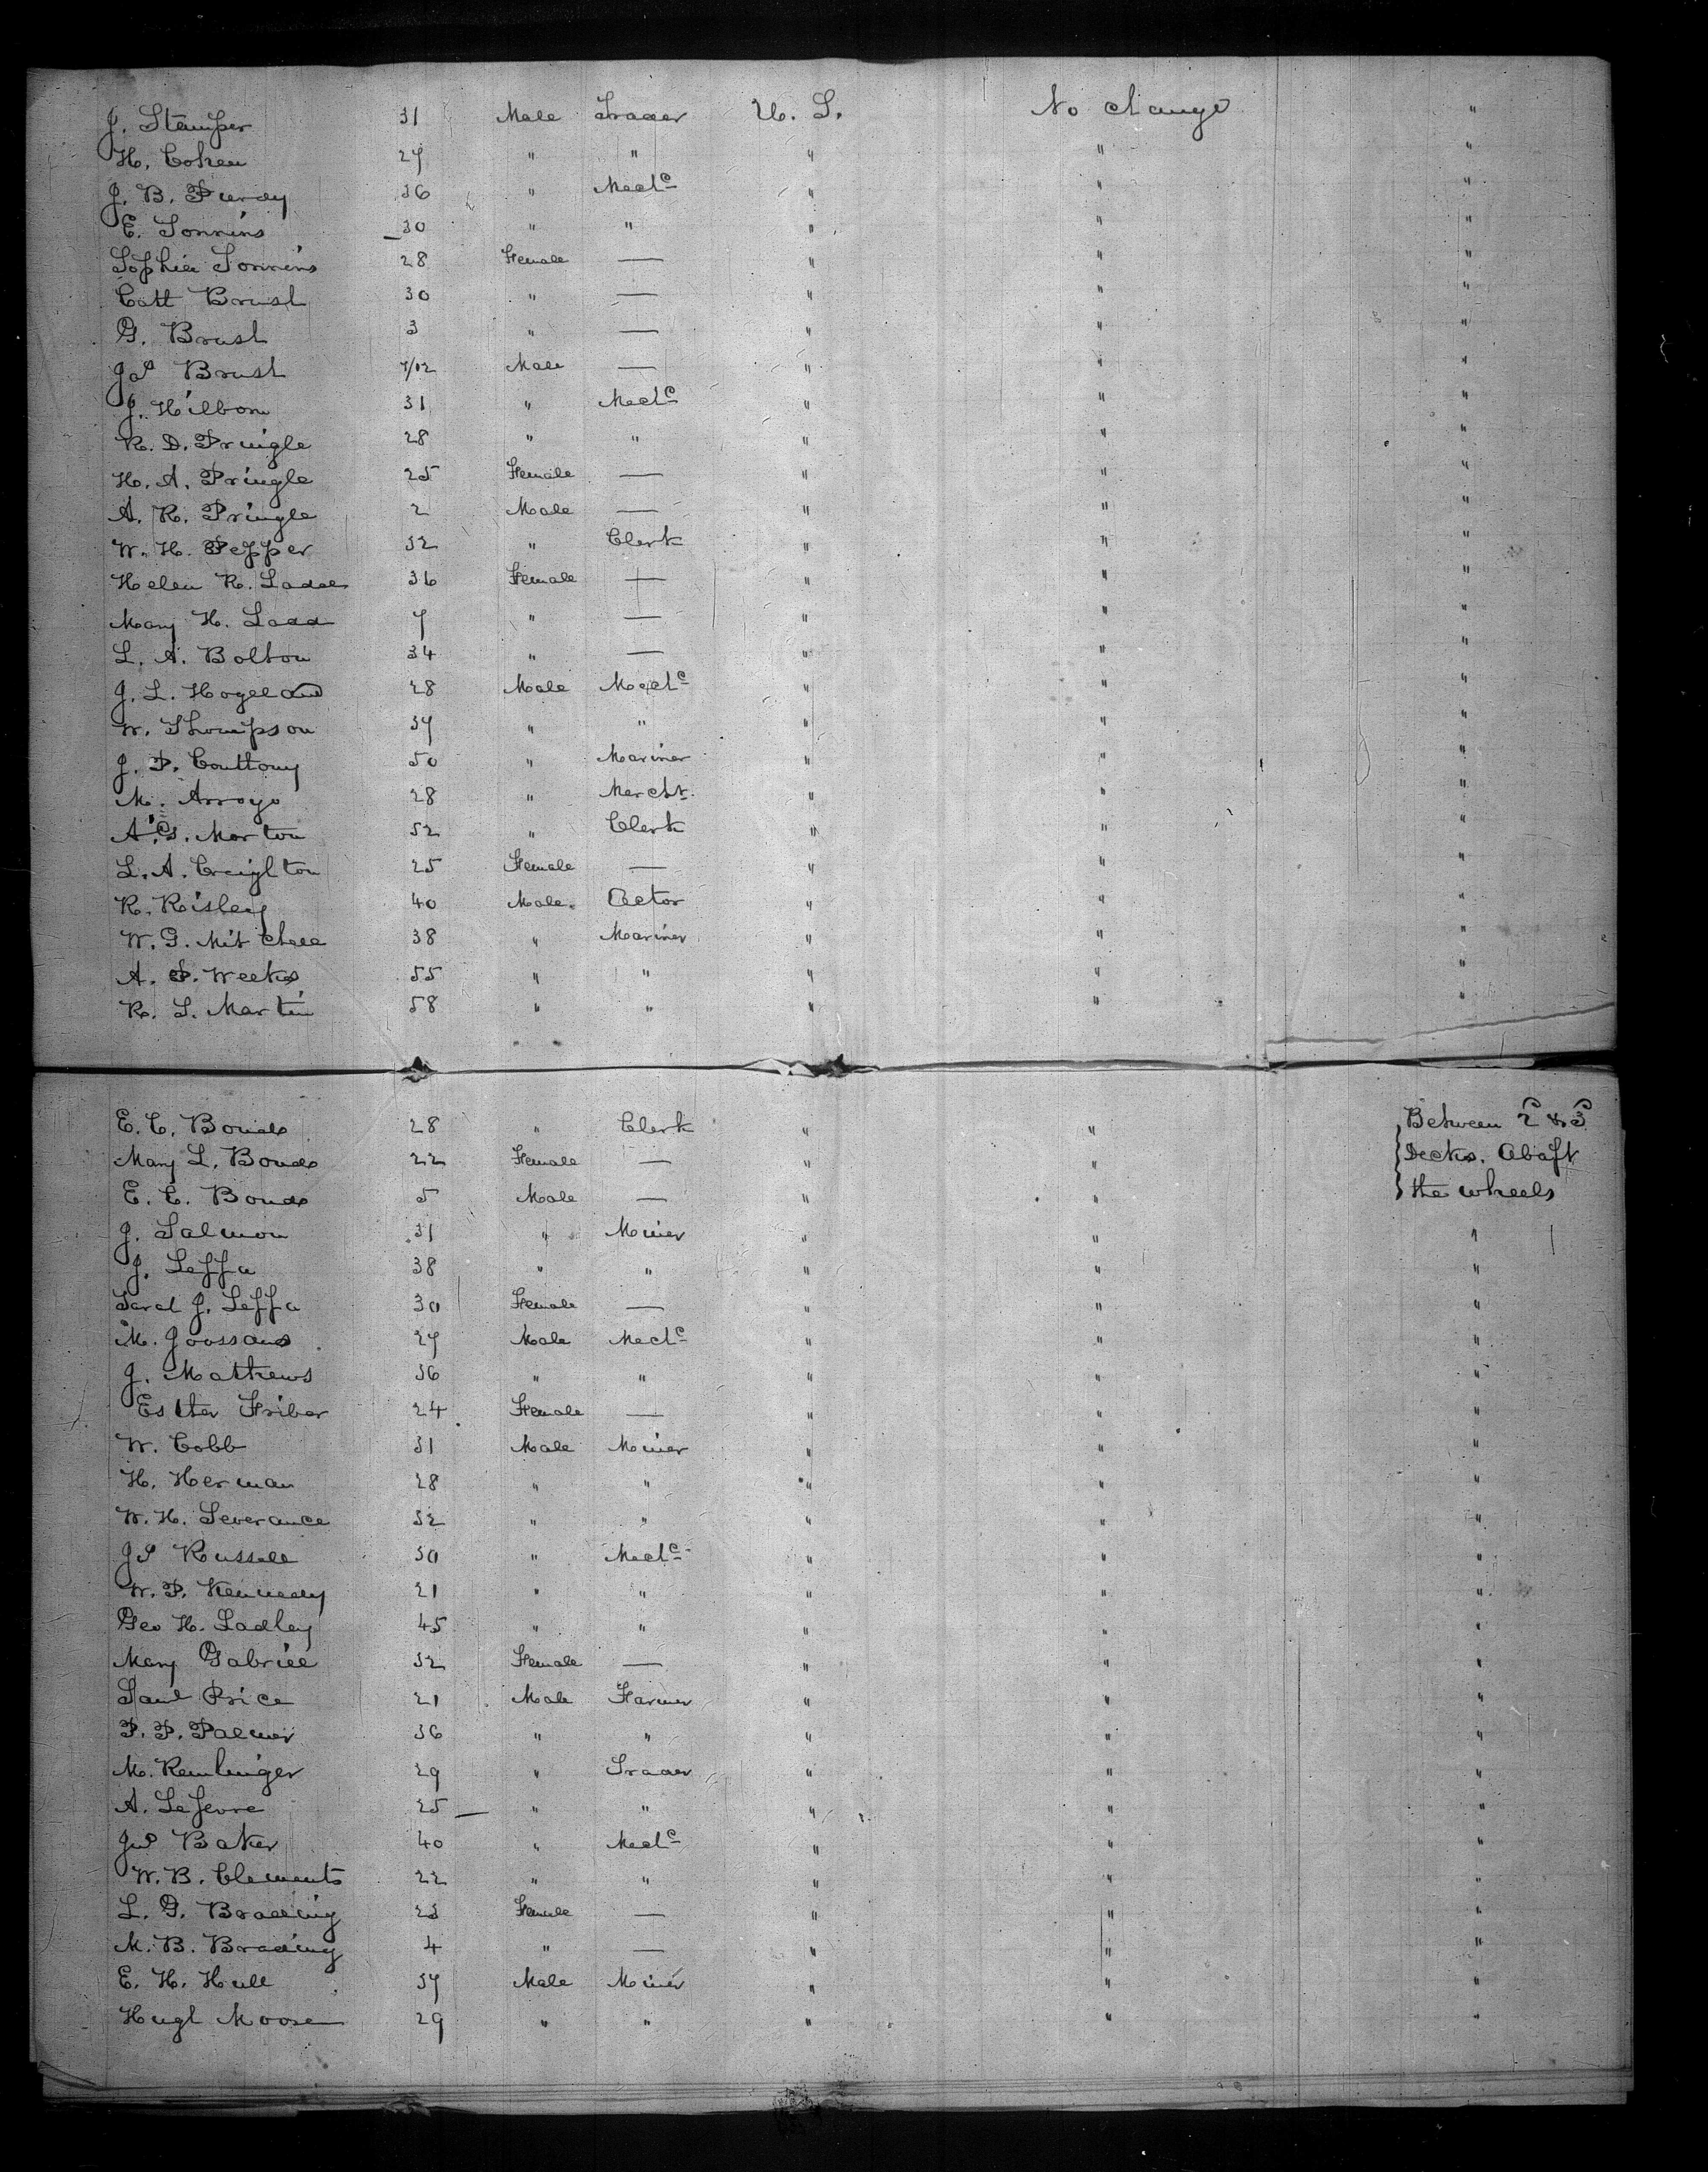 J. Stamper 31 Male Trader U. S. No change "
H. Cohen 27 " " " " "
J. B. Purdy 36 " Mechc " " "
E. Sonnins 30 " " " " "
Sophia Sonnins 28 Female — " " "
Catt Brush 30 " — " " "
G. Brush 3 " — " " "
Js Brush 7/12 Male — " " "
J. Hilborn 31 " Mechc " " "
R. D. Pringle 28 " " " " "
H. A. Pringle 25 Female — " " "
A. R. Pringle 2 Male — " " "
W. H. Pepper 32 " Clerk " " "
Helen R. Ladd 36 Female — " " "
Mary H. Ladd 7 " — " " "
L. A. Bolton 34 " — " " "
J. L. Hogeland 28 Male Mechc " " "
W. Thompson 37 " " " " "
J. P. Couttouy 50 " Mariner " " "
M. Arroyo 28 " Mercht. " " "
A. G. Morton 52 " Clerk " " "
L. A. Creighton 25 Female — " " "
R. Risley 40 Male Actor " " "
W. G. Mitchell 38 " Mariner " " "
A. P. Weeks 55 " " " " "
R. S. Martin 58 " " " " "
E. C. Bonds 28 " Clerk " " Between 2d & 3d
Mary L. Bonds 22 Female — " " Decks. Abaft
E. C. Bonds 5 Male — " " the wheels
J. Salmon 31 " Miner " " "
J. Leffa 38 " " " " "
Sarah J. Leffa 30 Female — " " "
M. Goossans 27 Male Mechc " " "
J. Mathews 36 " " " " "
Esther Friber 24 Female — " " "
W. Cobb 31 Male Miner " " "
H. Herman 28 " " " " "
W. H. Severance 32 " " " " "
Js Russell 30 " Mechc " " "
W. P. Kennedy 21 " " " " "
Geo H. Ladley 45 " " " " "
Mary Gabriel 32 Female — " " "
Saml Price 21 Male Farmer " " "
P. P. Palmer 36 " " " " "
M. Remlinger 29 " Trader " " "
A. Lefevre 25 " " " " "
Jno Baker 40 " Mechc " " "
W. B. Clements 22 " " " " "
L. G. Brading 23 Female — " " "
M. B. Brading 4 " — " " "
E. H. Hull 37 Male Miner " " "
Hugh Moose 29 " " " " "